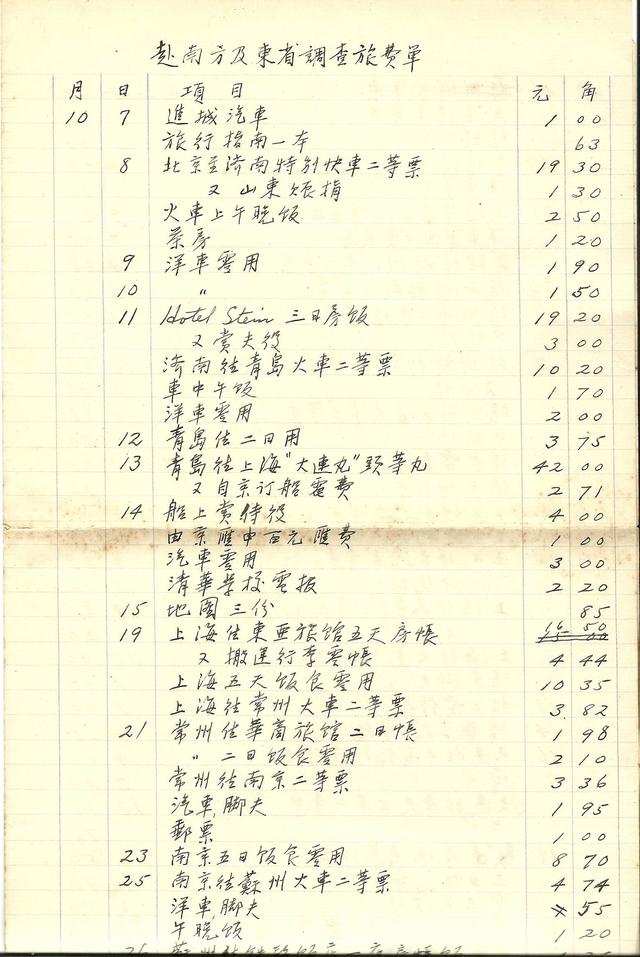 赴南方及東省調查旅费单
月 日 項目 元 角
10 7 進城汽車 1 00
旅行指南一本 63
8 北京至济南特别快車二等票 19 30
又 山東賑捐 1 30
火車上午晚饭 2 50
茶房 1 20
9 洋車零用 1 90
10 " 1 50
11 Hotel Stein 三日房饭 19 20
又賞夫役 3 00
济南往青島火車二等票 10 20
車中午饭 1 70
洋車零用 2 00
12 青島住二日用 3 75
13 青島往上海"大連丸"頭等丸 42 00
又自京订船電费 2 71
14 船上賞侍役 4 00
由京匯申百元匯费 1 00
汽車零用 3 00
清華学校電报 2 20
15 地圖三份 85
19 上海住東亜旅馆五天房帳 16 50
又搬運行李零帳 4 44
上海五天饭食零用 10 35
上海往常州火車二等票 3.82
21 常州住華商旅馆二日帳 1 98
" 二日饭食零用 2 10
常州往南京二等票 3 36
汽車,脚夫 1 95
郵票 1 00
23 南京五日饭食零用 8 70
25 南京往蘇州火車二等票 4 74
洋車,脚夫 55
午晚饭 1 20